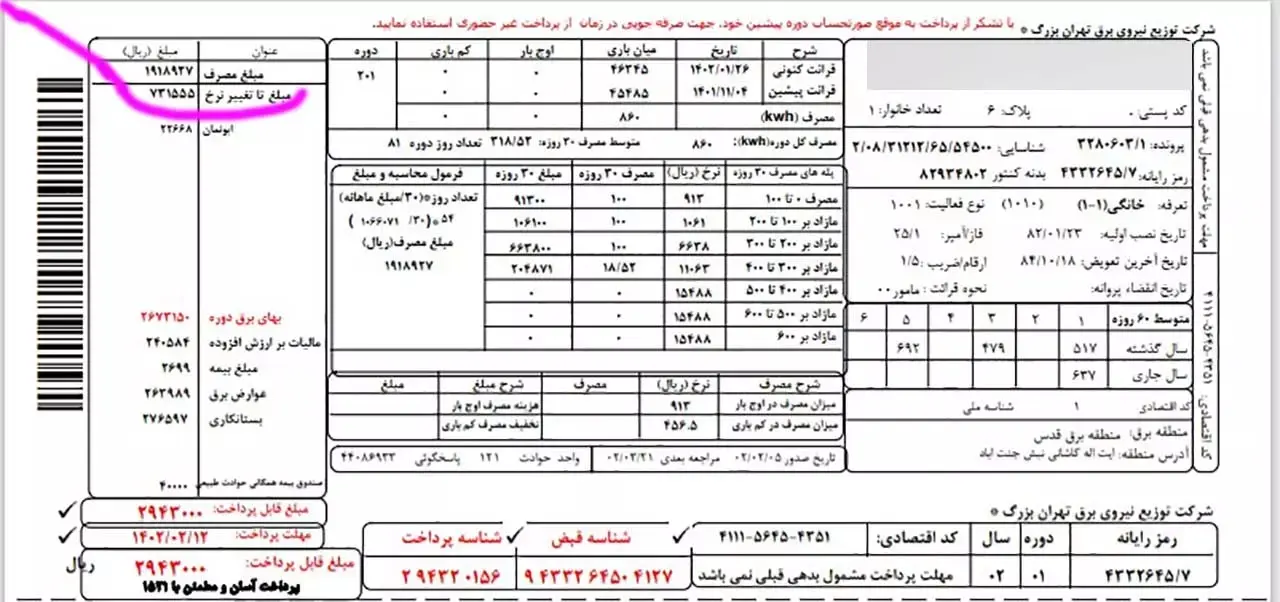 با تشکر از پرداخت به موقع صورتحساب دوره پیشین خود. جهت صرفه جویی در زمان از پرداخت غیر حضوری استفاده نمایید.
شرکت توزیع نیروی برق تهران بزرگ *
کد پستی: . پلاک: ۶ تعداد خانوار: ۱
پرونده: ۳۲۸۰۶۰۳/۱ شناسایی: ۲/۰۸/۳۱۲۱۲/۶۵/۵۴۵۰۰
رمز رایانه: ۴۳۳۲۶۴۵/۷ بدنه کنتور: ۸۲۹۳۴۸۰۲
تعرفه: خانگی(۱-۱) (۱۰۱۰) نوع فعالیت: ۱۰۰۱
تاریخ نصب اولیه: ۸۲/۰۱/۲۳ فاز/آمپر: ۲۵/۱
تاریخ آخرین تعویض: ۸۴/۱۰/۱۸ ارقام/ضریب: ۱/۵
تاریخ انقضاء پروانه: نحوه قرائت: مامور ۰۰
متوسط ۶۰ روزه ۱ ۲ ۳ ۴ ۵ ۶
سال گذشته ۵۱۷ ۴۷۹ ۶۹۲
سال جاری ۶۳۷
کد اقتصادی ۱ شناسه ملی
منطقه برق: منطقه برق قدس
آدرس منطقه: ایت اله کاشانی نبش جنت اباد
مهلت پرداخت مشمول بدهی قبلی نمی باشد
کد اقتصادی: ۴۱۱۱-۵۶۴۵-۴۳۵۱
شرح تاریخ میان باری اوج بار کم باری دوره
قرائت کنونی ۱۴۰۲/۰۱/۲۶ ۴۶۳۴۵ ۰ ۰ ۲۰۱
قرائت پیشین ۱۴۰۱/۱۱/۰۴ ۴۵۴۸۵ ۰ ۰
مصرف (kwh) ۸۶۰ ۰ ۰
مصرف کل دوره(kwh): ۸۶۰ متوسط مصرف ۳۰ روزه: ۳۱۸/۵۲ تعداد روز دوره ۸۱
پله های مصرف ۳۰ روزه نرخ (ریال) مصرف ۳۰ روزه مبلغ ۳۰ روزه فرمول محاسبه و مبلغ
مصرف ۰ تا ۱۰۰ ۹۱۳ ۱۰۰ ۹۱۳۰۰ تعداد روز*(۳۰/مبلغ ماهانه)
مازاد بر ۱۰۰ تا ۲۰۰ ۱۰۶۱ ۱۰۰ ۱۰۶۱۰۰ ۵۴*(۳۰/ ۱۰۶۶۰۷۱ )
مازاد بر ۲۰۰ تا ۳۰۰ ۶۶۳۸ ۱۰۰ ۶۶۳۸۰۰ مبلغ مصرف(ریال)
مازاد بر ۳۰۰ تا ۴۰۰ ۱۱۰۶۳ ۱۸/۵۲ ۲۰۴۸۷۱ ۱۹۱۸۹۲۷
مازاد بر ۴۰۰ تا ۵۰۰ ۱۵۴۸۸ ۰ ۰
مازاد بر ۵۰۰ تا ۶۰۰ ۱۵۴۸۸ ۰ ۰
مازاد بر ۶۰۰ ۱۵۴۸۸ ۰ ۰
شرح مصرف نرخ (ریال) مصرف شرح مبلغ مبلغ
میزان مصرف در اوج بار ۹۱۳ هزینه مصرف اوج بار
میزان مصرف در کم باری ۴۵۶.۵ تخفیف مصرف کم باری
تاریخ صدور ۰۲/۰۲/۰۵ مراجعه بعدی ۰۲/۰۳/۲۱ واحد حوادث ۱۲۱ پاسخگوئی ۴۴۰۸۶۹۳۳
عنوان مبلغ (ریال)
مبلغ مصرف ۱۹۱۸۹۲۷
مبلغ تا تغییر نرخ ۷۳۱۵۵۵
ابونمان ۲۲۶۶۸
بهای برق دوره ۲۶۷۳۱۵۰
مالیات بر ارزش افزوده ۲۴۰۵۸۴
مبلغ بیمه ۲۶۹۹
عوارض برق ۲۶۳۹۸۹
بستانکاری ۲۷۶۵۹۷
صندوق بیمه همگانی حوادث طبیعی ۴۰۰۰۰
مبلغ قابل پرداخت: ۲۹۴۳۰۰۰ ✓
مهلت پرداخت: ۱۴۰۲/۰۲/۱۲ ✓
مبلغ قابل پرداخت: ۲۹۴۳۰۰۰ ریال
پرداخت آسان و مطمئن با ۱۵۲۱
شرکت توزیع نیروی برق تهران بزرگ *
رمز رایانه دوره سال کد اقتصادی: ۴۱۱۱-۵۶۴۵-۴۳۵۱ شناسه قبض ✓ شناسه پرداخت ✓
۴۳۳۲۶۴۵/۷ ۰۱ ۰۲ مهلت پرداخت مشمول بدهی قبلی نمی باشد ۹ ۴۳۳۲ ۶۴۵۰ ۴۱۲۷ ۲ ۹۴۳۲ ۰۱۵۶